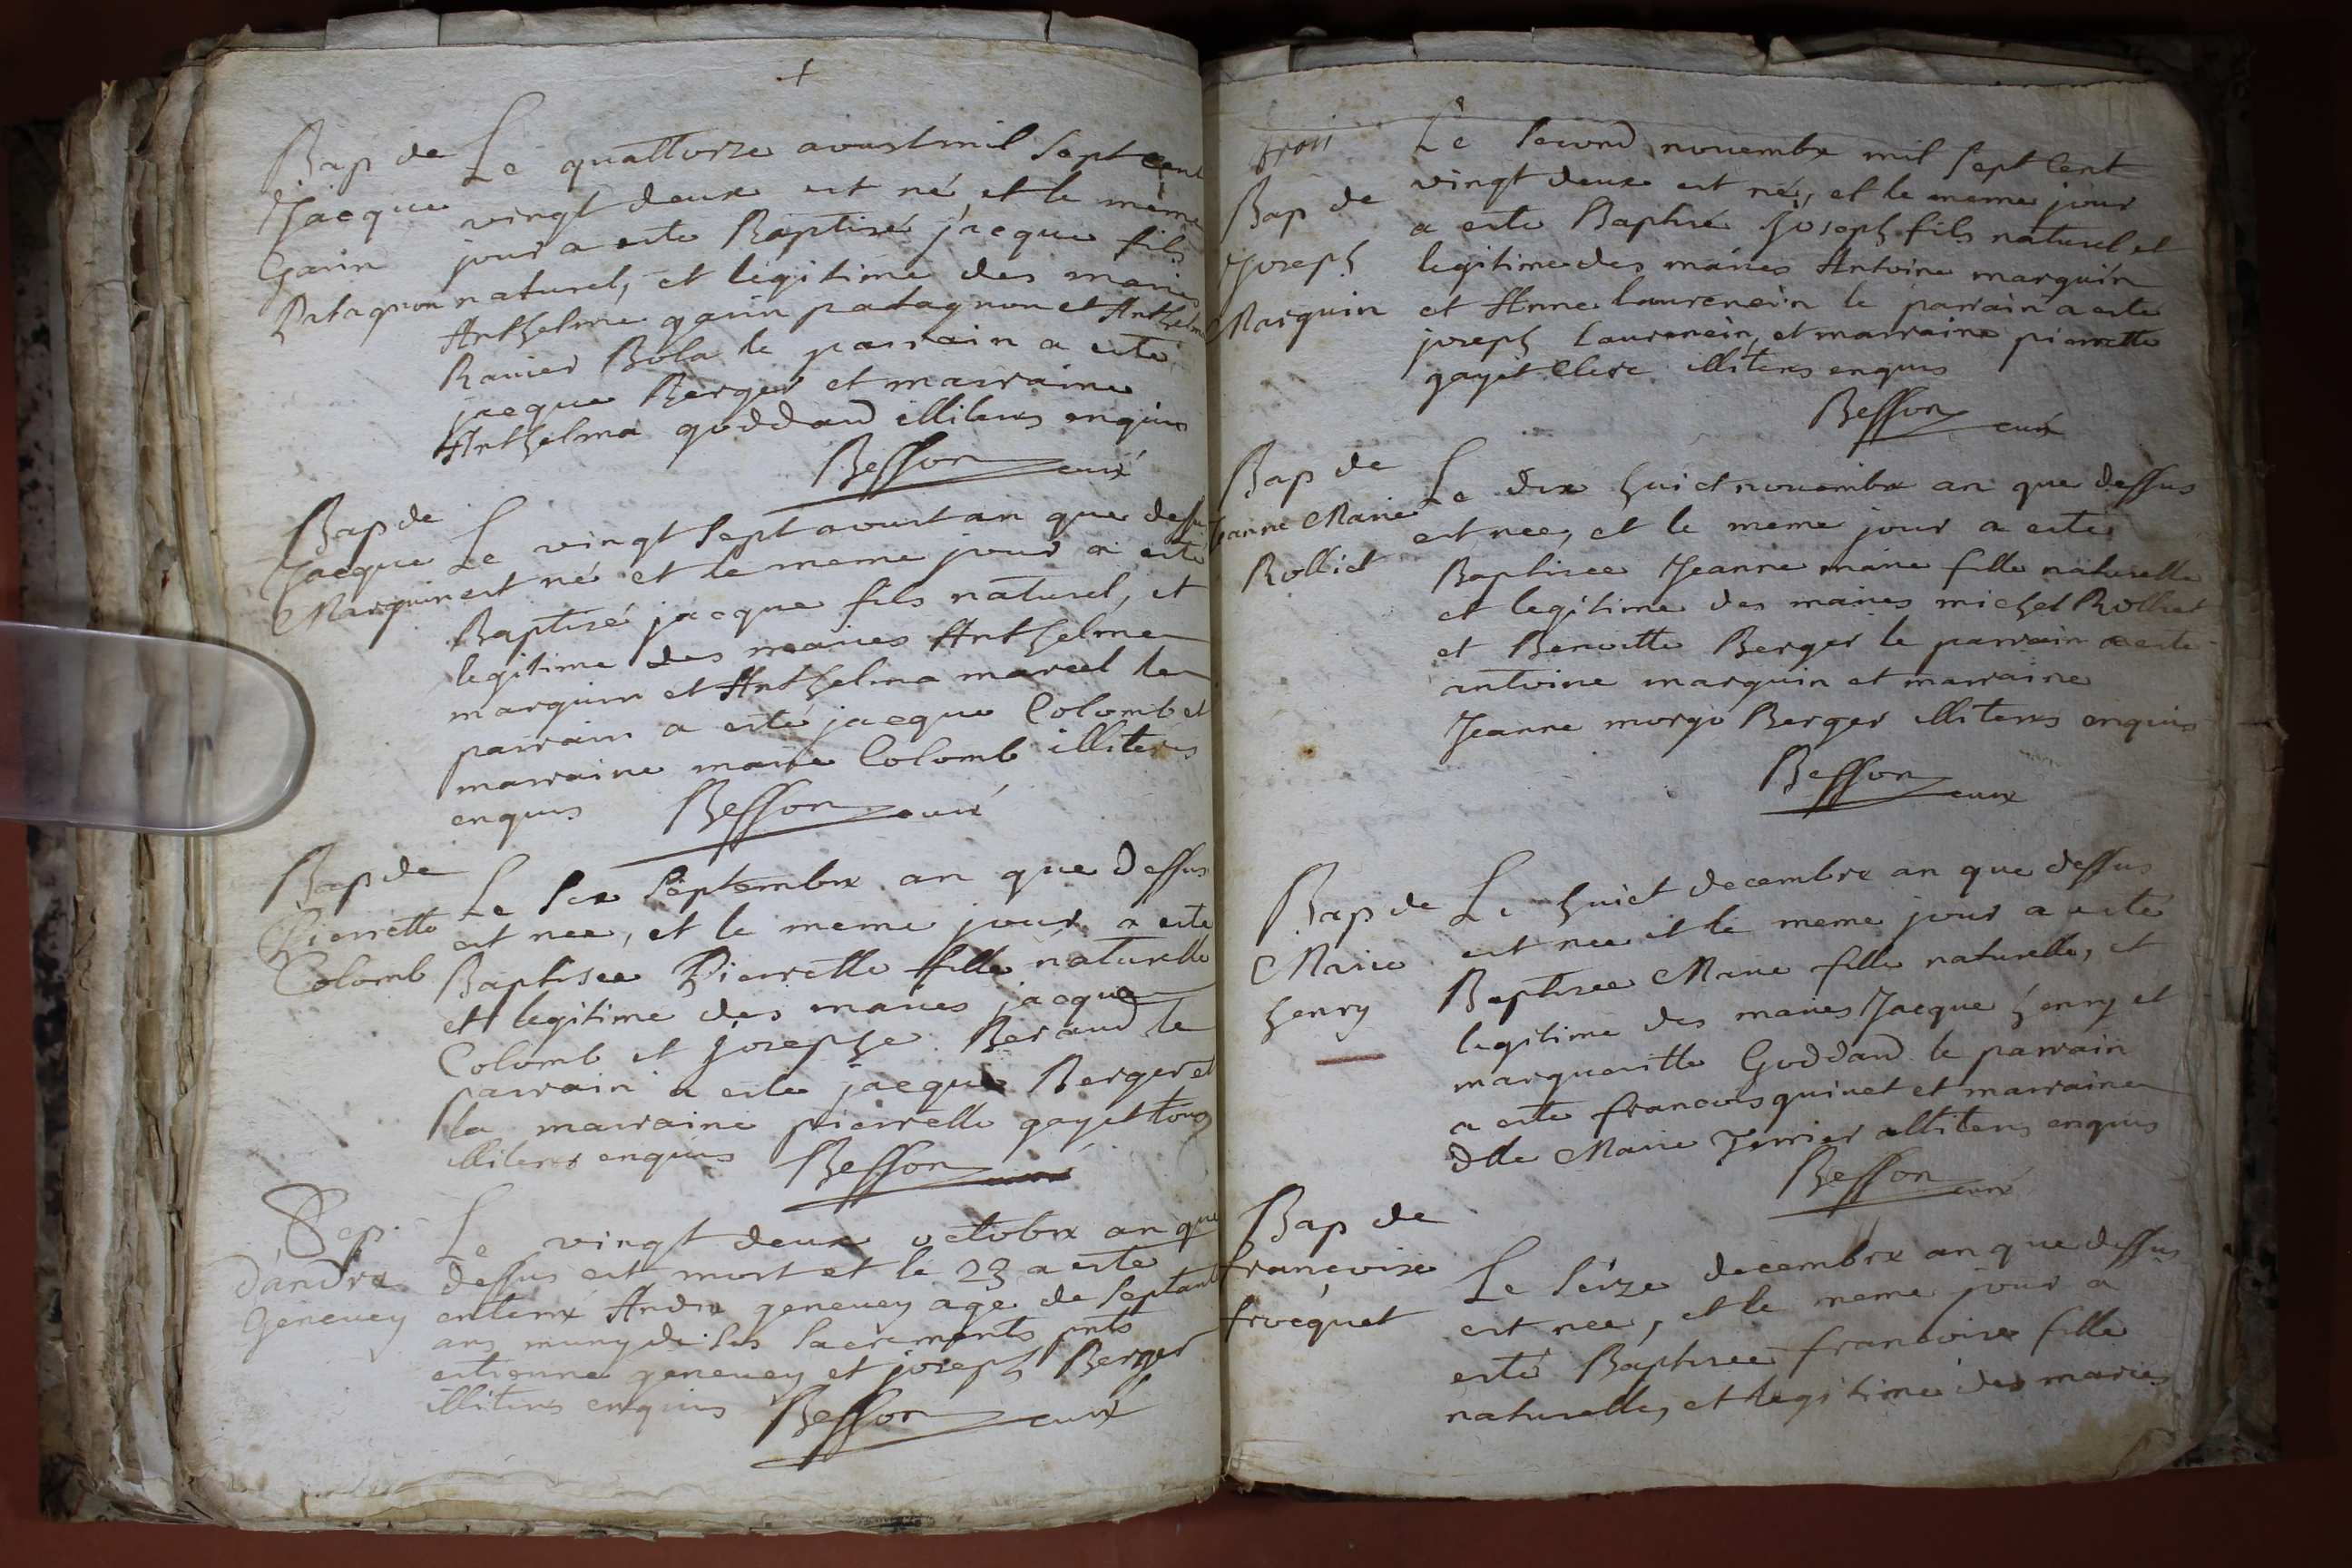 +
Bap de
Jacque
Garin
Patagnon
Le quattorze aoust mil sept cent
vingt deux est né, et le meme
jour a esté Baptisé jacque fils
naturel, et legitime des maries
Anthelme garin patagnon et Anthelma
Ravier Bola le parrain a esté
jacque Berger et marraine
Anthelma goddard illiteres enquis
Besson curé
Bap de
Jacque
Marquin
Le vingt sept aoust an que dessus
est né et le meme jour a esté
Baptisé jacque fils naturel, et
legitime des maries Anthelme
marquin et Anthelma marcel le
parrain a esté jacque Colomb et
marraine marie Colomb illiteres
enquis Besson curé
Bap de
Pierrette
Colomb
Le six septembre an que dessus
est nee, et le meme jour a esté
Baptisee Pierrette fille naturelle
et legitime des maries jacque
Colomb et josephe Beraud le
parrain a este jacque Berger et
la marraine pierrette gayet tous
illiteres enquis Besson curé
Sep.
d'andré
Genevey
Le vingt deux octobre an que
dessus est mort et le 23 a esté
enterré André genevey agé de septante
ans muny de ses sacrements pnts
estienne genevey et joseph Berger
illiteres enquis Besson curé
troii
Bap de
Joseph
Marquin
Le second novembre mil sept cent
vingt deux est né, et le meme jour
a esté Baptisé Joseph fils naturel et
legitime des maries Antoine marquin
et Anne laurencin le parrain a esté
joseph laurencin, et marraine pierrette
gayet Clerc illiteres enquis
Besson curé
Bap de
Jeanne Marie
Rolliet
Le dix huict novembre an que dessus
est nee, et le meme jour a esté
Baptisee Jeanne marie fille naturelle
et legitime des maries michel Rolliet
et Benoitte Berger le parrain a esté
antoine marquin et marraine
Jeanne morgo Berger illiteres enquis
Besson curé
Bap de
Marie
henry
Le huict decembre an que dessus
est nee et le meme jour a esté
Baptisee Marie fille naturelle, et
legitime des maries Jacque henry et
margueritte Goddard le parrain
a esté francois quinet et marraine
dlle Marie Terrier illiteres enquis
Besson curé
Bap de
françoise
frocquet
Le seize decembre an que dessus
est nee, et le meme jour a
esté Baptisee francoise fille
naturelle, et legitime des maries